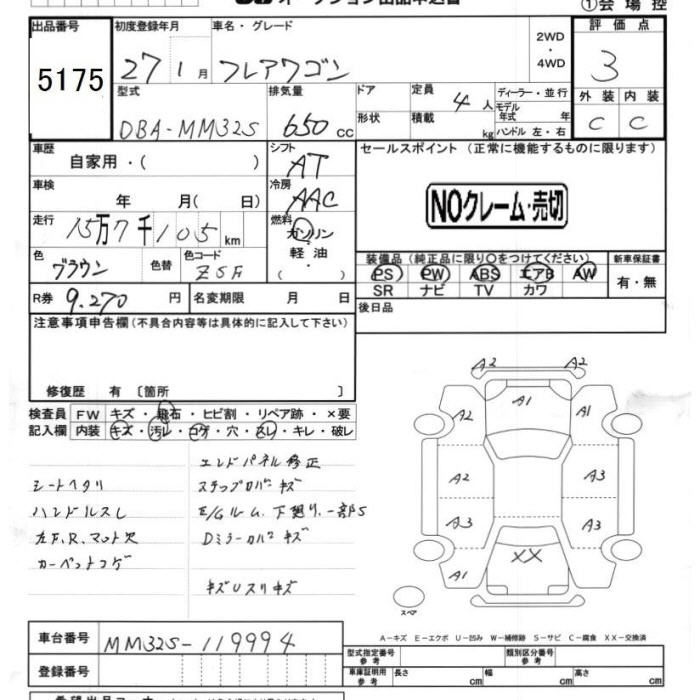 オークション出品申込書
①会場控
出品番号
5175
初度登録年月
27 1月
車名・グレード
フレアワゴン
2WD
・
4WD
評価点
3
型式
DBA-MM32S
排気量
650 cc
ドア
形状
定員
4人
積載
kg
ディーラー・並行
モデル
年式 年
ハンドル 左・右
外装
内装
C
C
車歴
自家用・( )
シフト
AT
セールスポイント(正常に機能するものに限ります)
車検
年 月( 日)
冷房
AAC
NOクレーム・売切
走行
15万7千105km
燃料
ガソリン
軽油
・( )
色
ブラウン
色替
色コード
ZSF
装備品(純正品に限り○をつけてください)
新車保証書
PS PW ABS エアB AW
SR ナビ TV カワ
有・無
R券
9.270円
名変期限 月 日
後日品
注意事項申告欄(不具合内容等は具体的に記入して下さい)
修復歴 有 〔箇所 〕
検査員
記入欄
FW キズ・飛石・ヒビ割・リペア跡・×要
内装 キズ・汚レ・コゲ・穴・スレ・キレ・破レ
エンドパネル修正
シートヘタリ
ステップロバーキズ
ハンドルスレ
E/Gルーム、下廻り、一部S
左F、R、マット欠
Dミラーカバーキズ
カーペットコゲ
キズUスリキズ
A2
A2
A2
A1
A1
A2
A3
A3
A3
XX
A1
スペア
A-キズ E-エクボ U-凹み W-補修跡 S-サビ C-腐食 XX-交換済
車台番号
MM32S-119994
登録番号
型式指定番号
参考
類別区分番号
参考
車庫証明用
参考
長さ cm
幅 cm
高さ cm